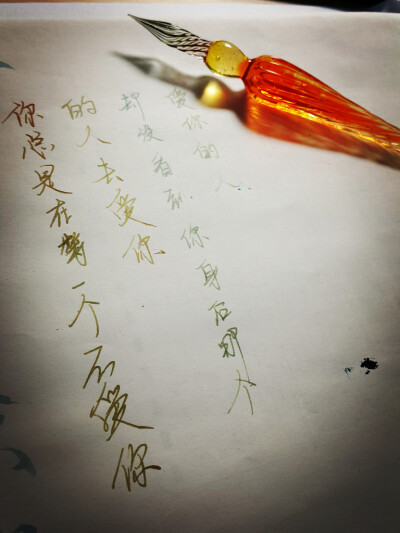 你总是在等一个不爱你
的人去爱你
却没看到你身后那个
爱你的人